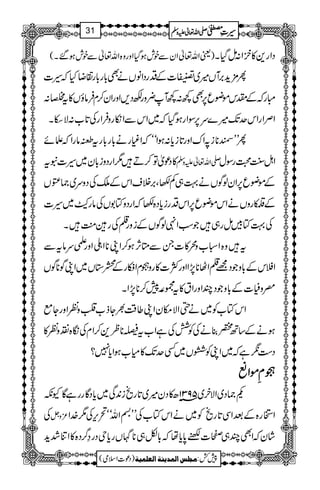 سیرتِ مصطفیٰ صلی اللہ تعالیٰ علیہ وسلم
31
دارین کا خزانہ مل گیا۔ (یعنی) اللہ تعالیٰ ان سے خوش ہو گیا اور وہ اللہ تعالیٰ سے خوش ہو گئے۔
پھر مزید برآں میری تصنیفات کے قدردانوں نے بھی بار بار تقاضا کیا کہ سیرت
مبارکہ کے مقدس موضوع پر بھی کچھ نہ کچھ آپ ضرور لکھ دیں اور ان کرم فرماؤں کا یہ مخلصانہ
اصرار اس حد تک میرے سر پر سوار ہو گیا کہ میں اس سے انکار و فرار کی تاب نہ لا سکا۔
پھر ”سمند ناز پہ اک اور تازیانہ ہوا“ کہ اغیار نے بار بار یہ طعنہ مارا کہ علمائے
اہل سنت محبتِ رسول صلی اللہ تعالیٰ علیہ وسلم کا دعویٰ تو کرتے ہیں مگر اردو زبان میں سیرت نبویہ
کے موضوع پر ان لوگوں نے بہت ہی کم لکھا، برخلاف اس کے ملک کی دوسری جماعتوں
کے قلمکاروں نے اس موضوع پر اس قدر زیادہ لکھا کہ اردو کتابوں کی مارکیٹ میں سیرت
کی بہت سی کتابیں مل رہی ہیں جو سب انہی لوگوں کے زور قلم کی رہین منت ہیں۔
یہ ہیں وہ اسباب و محرکات جن سے متاثر ہو کر اپنی نااہلی اور علمی سرمایہ سے
افلاس کے باوجود مجھے قلم اٹھانا پڑا اور کثرت کار و ہجوم افکار کے محشرستان میں اپنی گوناگوں
مصروفیات کے باوجود چند اوراق کا یہ مجموعہ پیش کرنا پڑا۔
اس کتاب کو میں نے حتی الامکان اپنی طاقت بھر جاذب قلب و نظر اور جامع
ہونے کے ساتھ مختصر بنانے کی کوشش کی ہے اب یہ فیصلہ ناظرین کرام کی نگاہ نقد و نظر کا
دست نگر ہے کہ میں اپنی کوششوں میں کسی حد تک کامیاب ہوا یا نہیں؟
ہجومِ موانع
یکم جمادی الاخریٰ ۱۳۹۵ھ کا دن میری تاریخ زندگی میں یادگار رہے گا کیونکہ
استخارہ کے بعد اسی تاریخ کو میں نے ”بسم اللہ“ اس کتاب کی تحریر کی مگر خدا عزوجل کی
شان کہ ابھی چند ہی صفحات لکھنے پایا تھا کہ بالکل ہی ناگہاں ریاحی دردِ گردہ کا اتنا شدید
پیش کش: مجلس المدینۃ العلمیۃ (دعوتِ اسلامی)